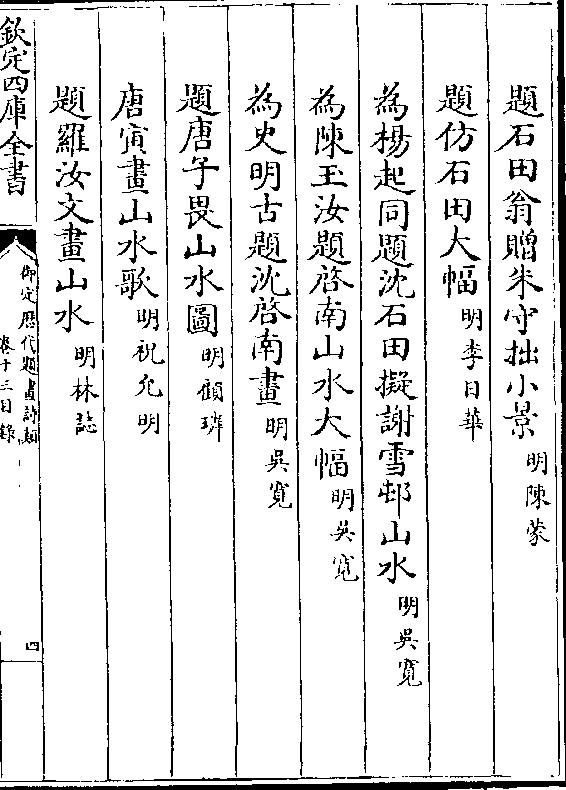 題石田翁贈朱守拙小景 明陳蒙
題仿石田大幅 明李日華
為楊起同題沈石田擬謝雪邨山水 明吳寬
為陳玉汝題啓南山水大幅 明吳寬
為史明古題沈啓南畫 明吳寬
題唐子畏山水圖 明顧璘
唐寅畫山水歌 明祝允明
題羅汝文畫山水 明林誌
欽定四庫全書
御定歴代題畫詩類
卷十三目錄
四